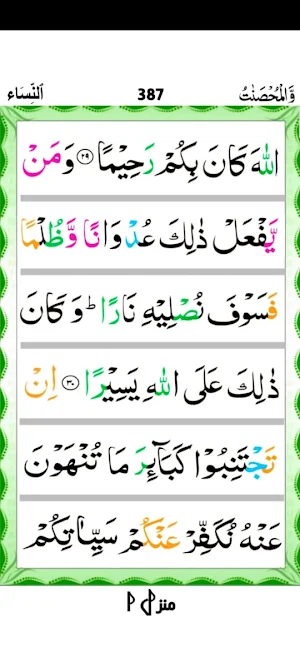 اَلنِّسَآء 387 وَّالْمُحْصَنٰتُ
اللّٰهَ كَانَ بِكُمْ رَحِيْمًا ۝۲۹ وَمَنْ
يَّفْعَلْ ذٰلِكَ عُدْوَانًا وَّظُلْمًا
فَسَوْفَ نُصْلِيْهِ نَارًا ؕ وَكَانَ
ذٰلِكَ عَلَى اللّٰهِ يَسِيْرًا ۝۳۰ اِنْ
تَجْتَنِبُوْا كَبَآئِرَ مَا تُنْهَوْنَ
عَنْهُ نُكَفِّرْ عَنْكُمْ سَيِّاٰتِكُمْ
منزل ۱